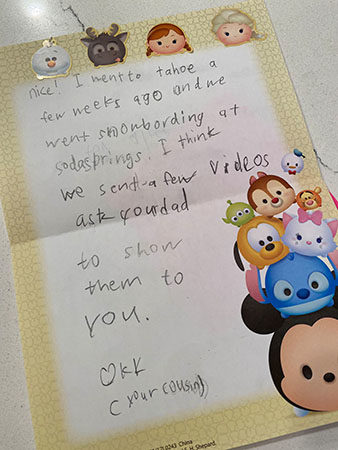 nice! I went to tahoe a
few weeks ago and we
went snowbording at
sodasprings. I think
we send a few videos
ask your dad
to show
them to
you.
KK
(your cousin)
0243 China
E.H. Shepard.